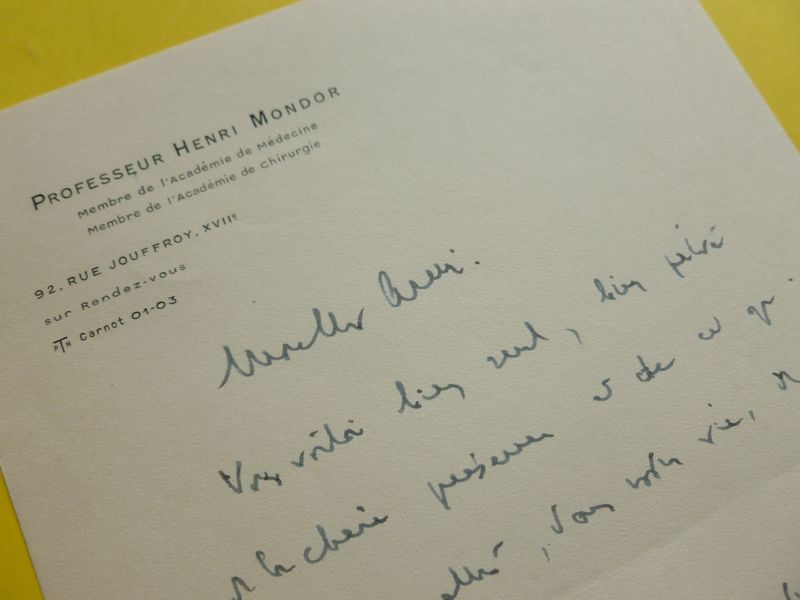 PROFESSEUR HENRI MONDOR
Membre de l'Académie de Médecine
Membre de l'Académie de Chirurgie
92, RUE JOUFFROY, XVIIe
sur Rendez-vous
PTH Carnot 01-03
Vous voilà bien seul, bien privé
la chère présence et de ce qu
, dans votre vie,